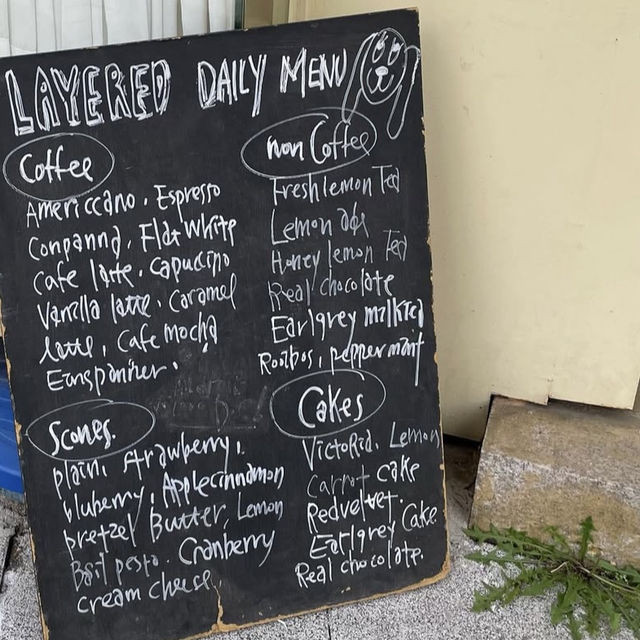 LAYERED DAILY MENU
Coffee
Americcano. Espresso
Conpanna. Flat White
Cafe latte. Capuccino
Vanilla latte. Caramel
latte, Cafe mocha
Einspanner.
non Coffee
Fresh lemon Tea
Lemon ade
Honey lemon Tea
Real chocolate
Earlgrey milktea
Rooibos, peppermint
Scones.
plain, strawberry,
bluberry, Applecinnamon
pretzel Butter, Lemon
Basil pesto. Cranberry
cream cheese
Cakes
Victoria, Lemon
Carrot cake
Redvelvet.
Earlgrey Cake
Real chocolate.